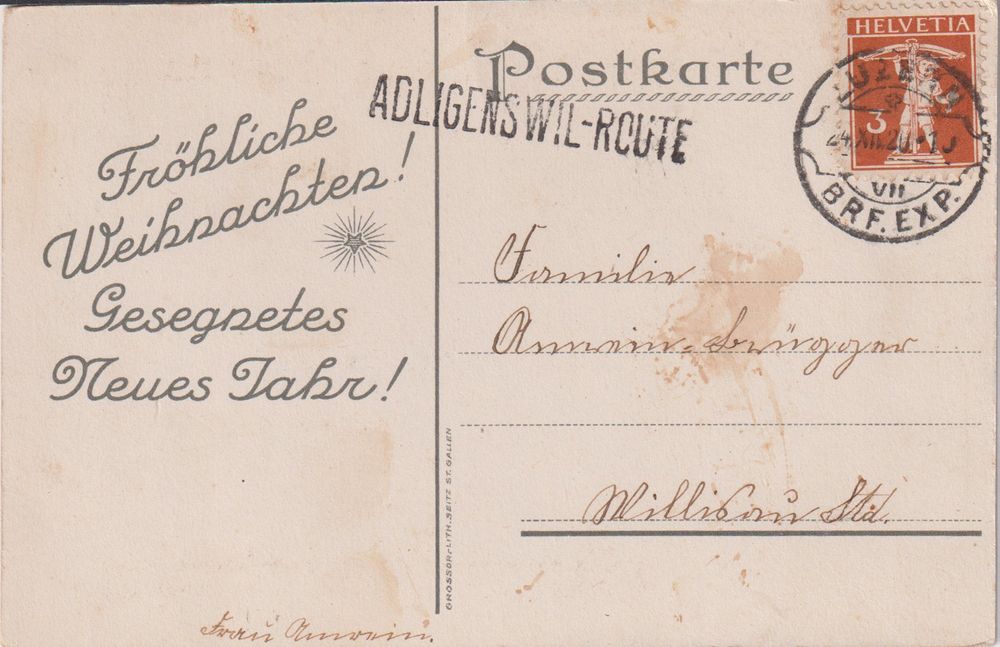 Fröhliche
Weihnachten!
Gesegnetes
Neues Jahr!
Frau Amrein.
GROSSOR-LITH. SEITZ ST. GALLEN
Postkarte
ADLIGENSWIL-ROUTE
HELVETIA
3
LUZERN
24.XII.20.-10
VII
BRF. EXP.
Familie
Amrein-Brügger
Willisau Std.